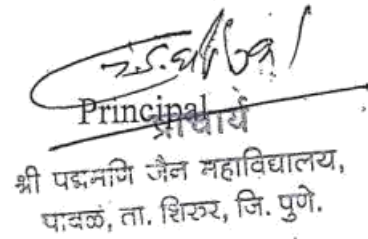 Principal
प्राचार्य
श्री पद्ममणि जैन महाविद्यालय,
पाबळ, ता. शिरुर, जि. पुणे.